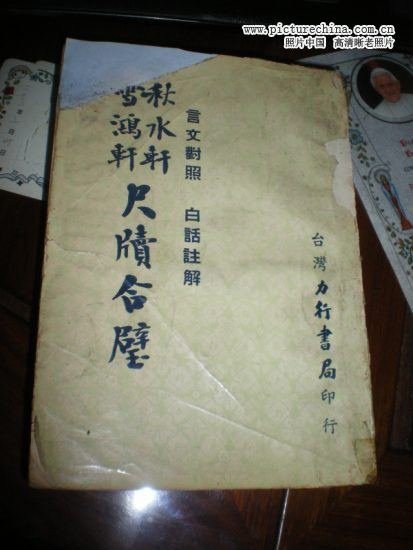 www.picturechina.com.cn
照片中国 高清晰老照片
秋水軒
雪鴻軒
尺牘合璧
言文對照 白話註解
台灣力行書局印行